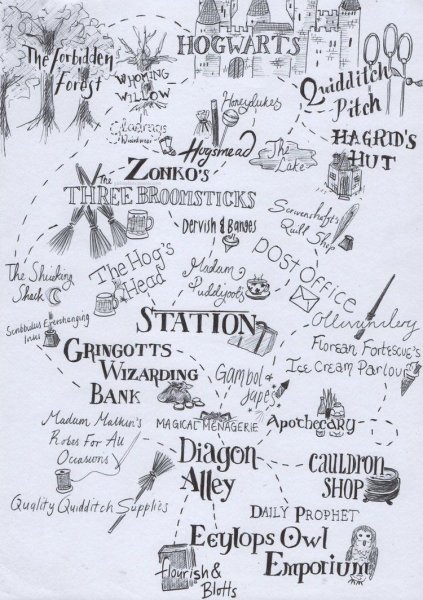 The Forbidden
Forest
WHOMING
WILLOW
HOGWARTS
Quidditch
Pitch
Honeydukes
Hogsmead
The
Lake
HAGRID'S
HUT
ZONKO'S
The THREE BROOMSTICKS
Dervish & Banges
Scrivenshaft's
Quill Shop
The Shrieking
Shack
The Hog's
Head
Madam
Puddifoot's
POST OFFICE
STATION
GRINGOTTS
WIZARDING
BANK
Gambol &
Japes
Florean Fortescue's
Ice Cream Parlour
Madam Malkin's
Robes For All
Occasions
MAGICAL MENAGERIE
Apothecary
Diagon
Alley
CAULDRON
SHOP
Quality Quidditch Supplies
DAILY PROPHET
Eeylops Owl
Emporium
Flourish &
Blotts